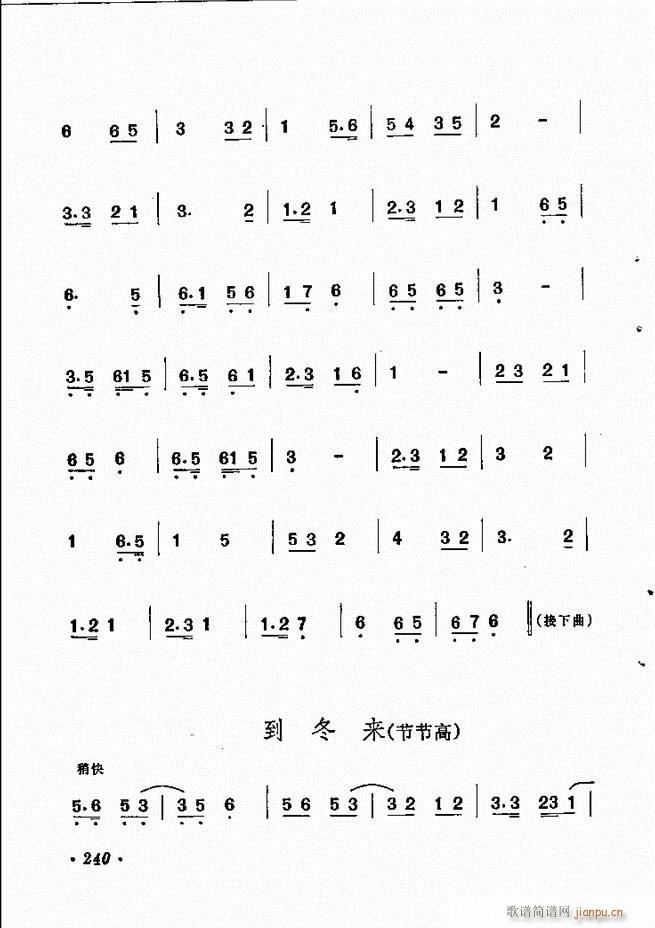 6 6 5 | 3 3 2 | 1 5.6 | 5 4 3 5 | 2 - |
3.3 2 1 | 3. 2 | 1.2 1 | 2.3 1 2 | 1 6 5 |
6. 5 | 6.1 5 6 | 1 7 6 | 6 5 6 5 | 3 - |
3.5 61 5 | 6.5 6 1 | 2.3 1 6 | 1 - | 2 3 2 1 |
6 5 6 | 6.5 61 5 | 3 - | 2.3 1 2 | 3 2 |
1 6.5 | 1 5 | 5 3 2 | 4 3 2 | 3. 2 |
1.2 1 | 2.3 1 | 1.2 7 | 6 6 5 | 6 7 6 ‖ (接下曲)
到 冬 来(节节高)
稍快
5.6 5 3 | 3 5 6 | 5 6 5 3 | 3 2 1 2 | 3.3 23 1 |
· 240 ·
歌谱简谱网 jianpu.cn